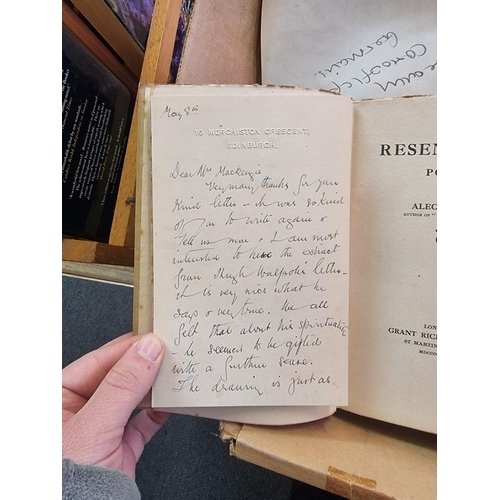 May 8th
10 MERCHISTON CRESCENT,
EDINBURGH.
Dear Mr Mackenzie
Very many thanks for your
kind letter – it was so kind
of you to write again &
tell us more & I am most
interested to have the extract
from Hugh Walpole's letter –
it is very nice what he
says & very true. We all
felt that about his spirituality
– he seemed to be gifted
with a further sense.
The drawing is just as
RESEN
PO
ALEC
AUTHOR OF "
LON
GRANT RIC
ST MARTIN
MDCCC